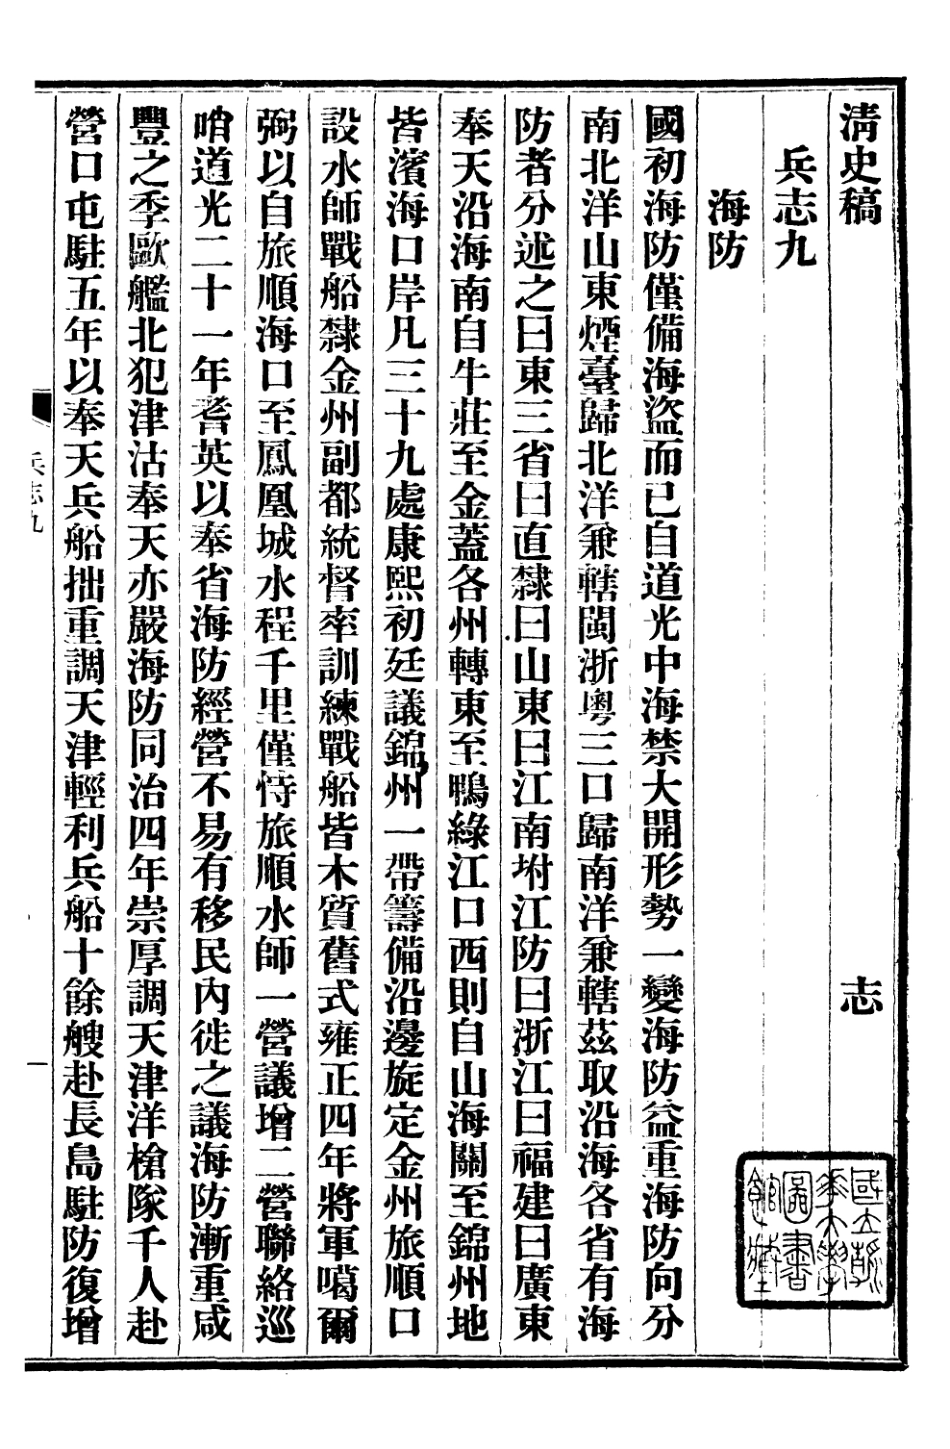 清史稿 志
兵志九
海防
國初海防僅備海盜而已自道光中海禁大開形勢一變海防益重海防向分
南北洋山東煙臺歸北洋兼轄閩浙粵三口歸南洋兼轄茲取沿海各省有海
防者分述之曰東三省曰直隸曰山東曰江南坿江防曰浙江曰福建曰廣東
奉天沿海南自牛莊至金蓋各州轉東至鴨綠江口西則自山海關至錦州地
皆濱海口岸凡三十九處康熙初廷議錦州一帶籌備沿邊旋定金州旅順口
設水師戰船隸金州副都統督率訓練戰船皆木質舊式雍正四年將軍噶爾
弼以自旅順海口至鳳凰城水程千里僅恃旅順水師一營議增二營聯絡巡
哨道光二十一年耆英以奉省海防經營不易有移民內徙之議海防漸重咸
豐之季歐艦北犯津沽奉天亦嚴海防同治四年崇厚調天津洋槍隊千人赴
營口屯駐五年以奉天兵船拙重調天津輕利兵船十餘艘赴長島駐防復增
兵志九
一
國立清
華大學
圖書
館藏